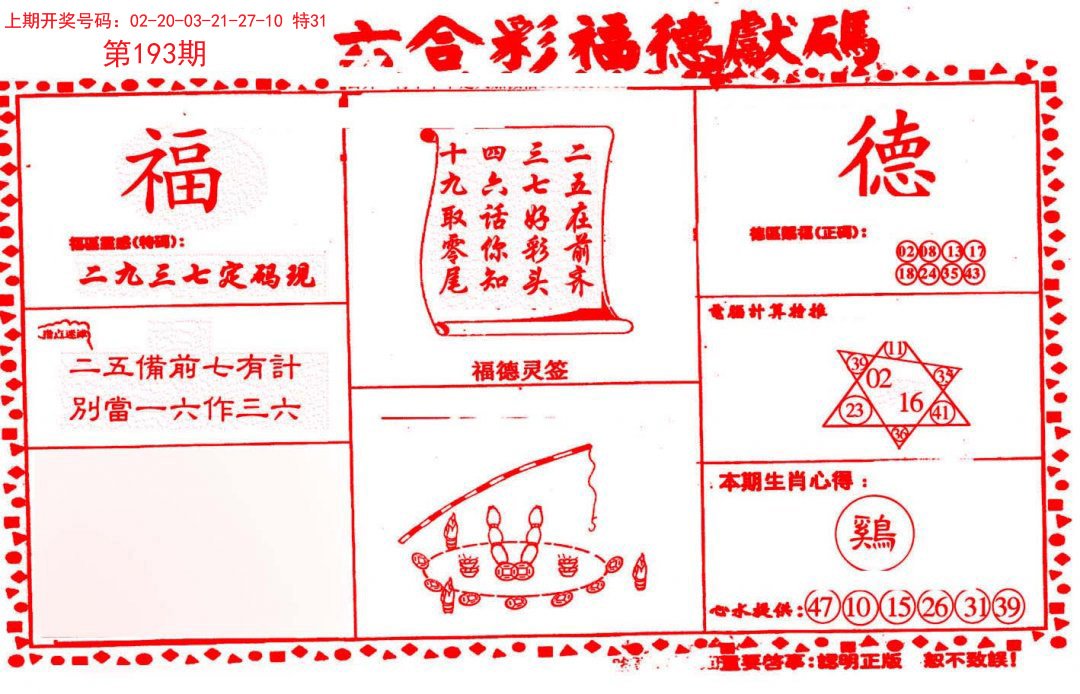 上期开奖号码：02-20-03-21-27-10 特31
第193期
六合彩福德獻碼
福
福區靈感(特碼)：
二九三七定码现
二五備前七有計
別當一六作三六
二五在前齐
三七好彩头
四六话你知
十九取零尾
福德灵签
德
德區賜福(正碼)：
02 08 13 17
18 24 35 43
電腦計算榜推
11
39 02 35
23 16 41
36
本期生肖心得：
鷄
心水提供：47 10 15 26 31 39
重要啓事：認明正版 恕不致誤！